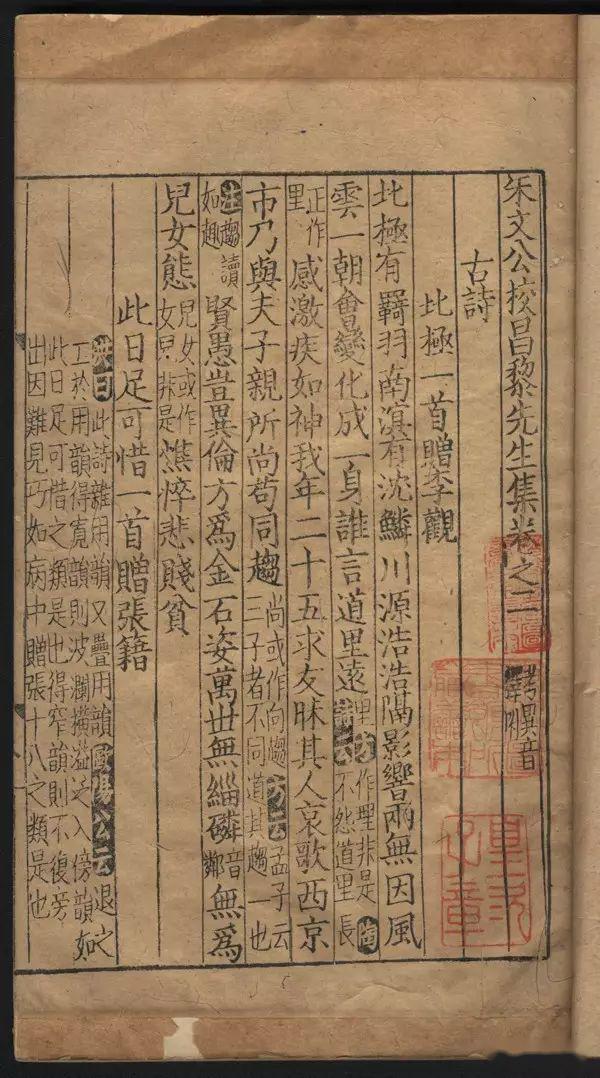 朱文公校昌黎先生集卷之二 考異音釋附
古詩
北極一首贈李觀
北極有羇羽南溟有沈鱗川源浩浩隔影響兩無因風
雲一朝會變化成一身誰言道里遠里方作理非是陶詩云不然道里長
正作里感激疾如神我年二十五求友昧其人哀歌西京
市乃與夫子親所尚苟同趨尚或作向趨方云孟子云三子者不同道其趨一也
注趨讀如趣賢愚豈異倫方爲金石姿萬世無緇磷音鄰無爲
兒女態兒女或作女兒非是憔悴悲賤貧
此日足可惜一首贈張籍
洪曰此詩雜用韻又疊用韻歐陽公云退之
工於用韻得寬韻則波瀾橫溢泛入傍韻如
此日足可惜之類是也得窄韻則不復旁
出因難見巧如病中贈張十八之類是也